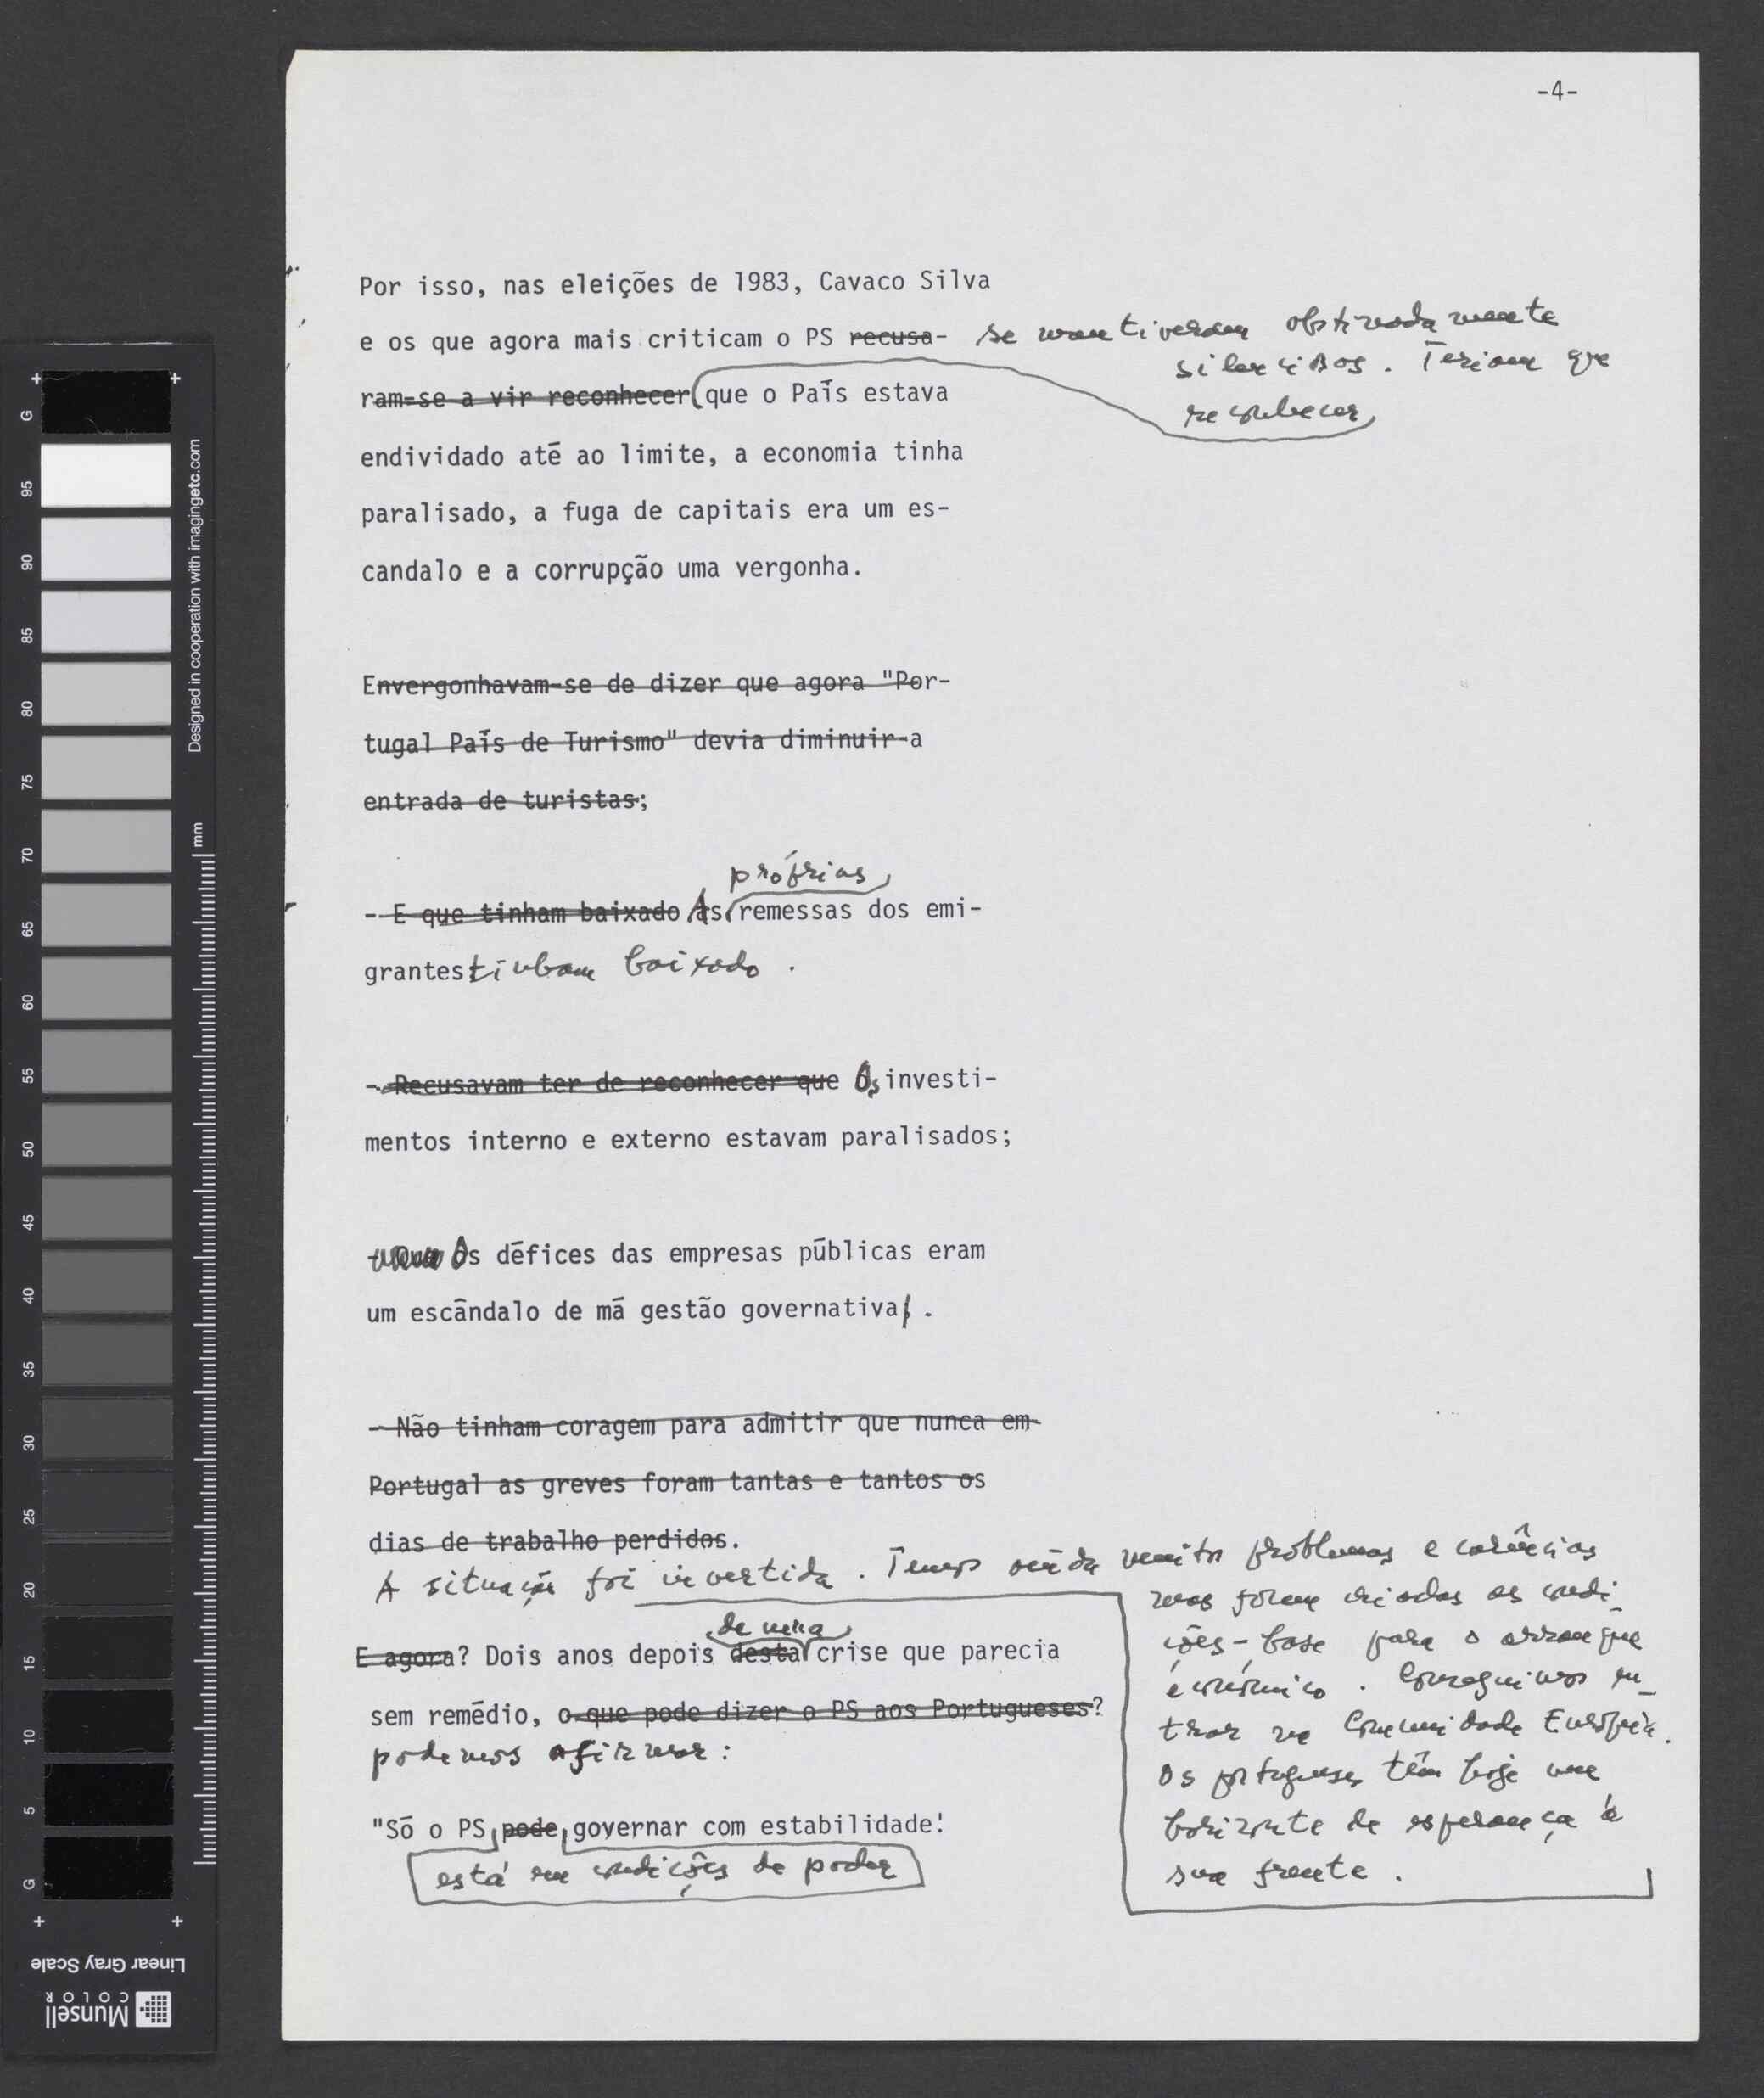 -4-
Por isso, nas eleições de 1983, Cavaco Silva
e os que agora mais criticam o PS recusa- se mantiveram obstinadamente
silenciosos. Teriam que
ram-se a vir reconhecer que o País estava
reconhecer
endividado até ao limite, a economia tinha
paralisado, a fuga de capitais era um es-
candalo e a corrupção uma vergonha.
Envergonhavam-se de dizer que agora "Por-
tugal País de Turismo" devia diminuir a
entrada de turistas;
próprias
- E que tinham baixado As remessas dos emi-
grantes tinham baixado.
- Recusavam ter de reconhecer que Os investi-
mentos interno e externo estavam paralisados;
Os défices das empresas públicas eram
um escândalo de má gestão governativa.
- Não tinham coragem para admitir que nunca em
Portugal as greves foram tantas e tantos os
dias de trabalho perdidos.
A situação foi invertida. Temos ainda muitos problemas e carências
mas foram criadas as condi-
ções-base para o arranque
económico. Conseguimos en-
trar na Comunidade Europeia.
Os portugueses têm hoje um
horizonte de esperança à
sua frente.
de uma
E agora? Dois anos depois desta crise que parecia
sem remédio, o que pode dizer o PS aos Portugueses?
podemos afirmar:
"Só o PS pode governar com estabilidade!
está em condições de poder
G
95
90
85
80
75
70
65
60
55
50
45
40
35
30
25
20
15
10
5
G
Designed in cooperation with imagingetc.com
mm
Linear Gray Scale
Munsell
COLOR